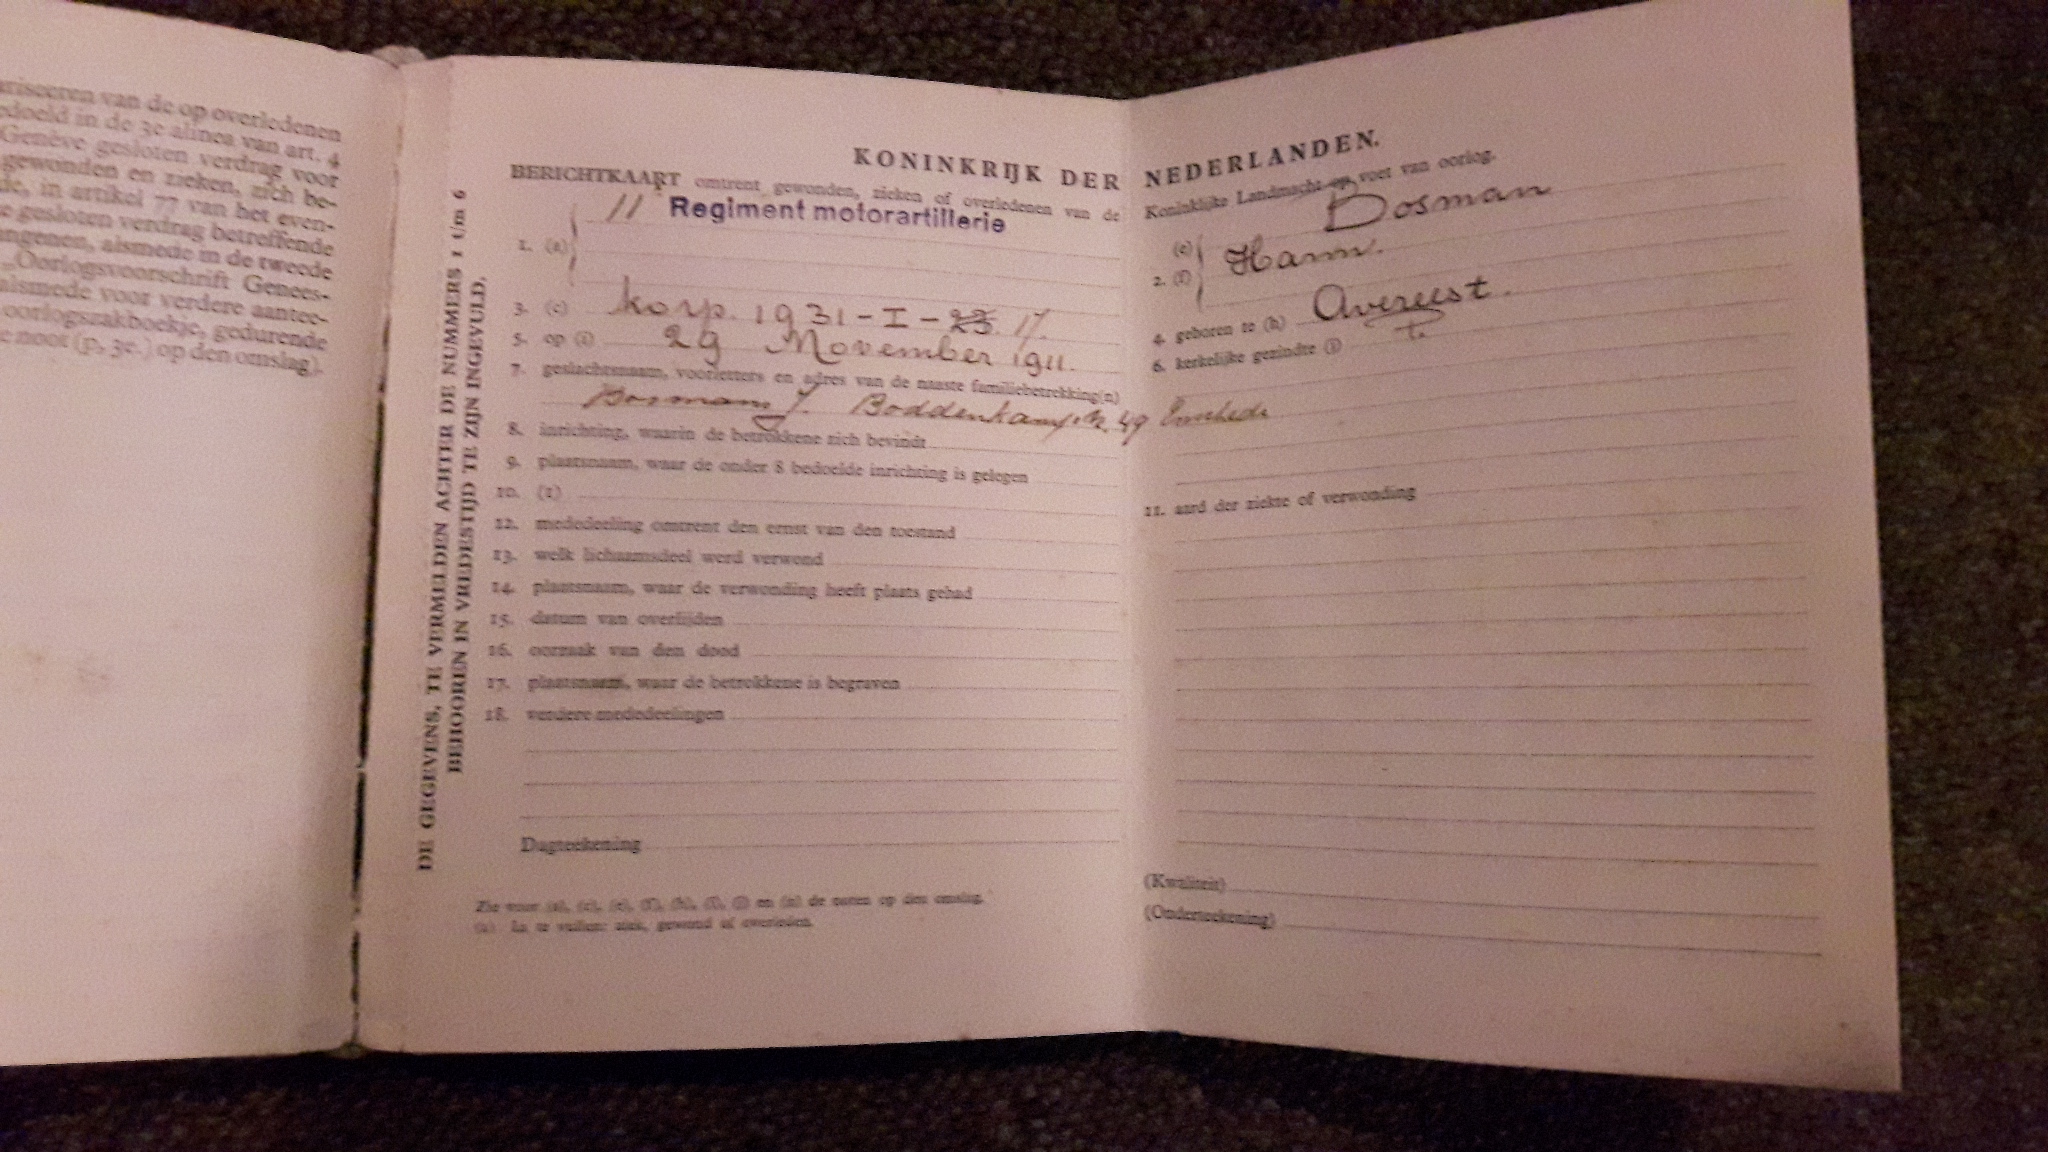 riseeren van de op overledenen
edoeld in de 3e alinea van art. 4
Genève gesloten verdrag voor
gewonden en zieken, zich be-
de, in artikel 77 van het even-
e gesloten verdrag betreffende
angenen, alsmede in de tweede
„Oorlogsvoorschrift Genees-
alsmede voor verdere aantee-
oorlogszakboekje, gedurende
e noot (p, 3e.) op den omslag).
DE GEGEVENS, TE VERMELDEN ACHTER DE NUMMERS 1 t/m 6
BEHOOREN IN VREDESTIJD TE ZIJN INGEVULD.
KONINKRIJK DER NEDERLANDEN.
BERICHTKAART omtrent gewonden, zieken of overledenen van de Koninklijke Landmacht op voet van oorlog.
11 Regiment motorartillerie
1. (a)
(e) Bosman
2. (f) Harm.
3. (c) korp. 1931-I-23. 17.
4. geboren te (h) Avereest.
5. op (i) 29 November 1911.
6. kerkelijke gezindte (j)
7. geslachtsnaam, voorletters en adres van de naaste familiebetrekking(n)
Bosman J. Boddenkampstr. 49 Enschede
8. inrichting, waarin de betrokkene zich bevindt
9. plaatsnaam, waar de onder 8 bedoelde inrichting is gelegen
10. (1)
11. aard der ziekte of verwonding
12. mededeeling omtrent den ernst van den toestand
13. welk lichaamsdeel werd verwond
14. plaatsnaam, waar de verwonding heeft plaats gehad
15. datum van overlijden
16. oorzaak van den dood
17. plaatsnaam, waar de betrokkene is begraven
18. verdere mededeelingen
Dagteekening
(Kwaliteit)
(Onderteekening)
Zie voor (a), (c), (e), (f), (h), (i), (j) en (n) de noten op den omslag.
In te vullen: ziek, gewond of overleden.